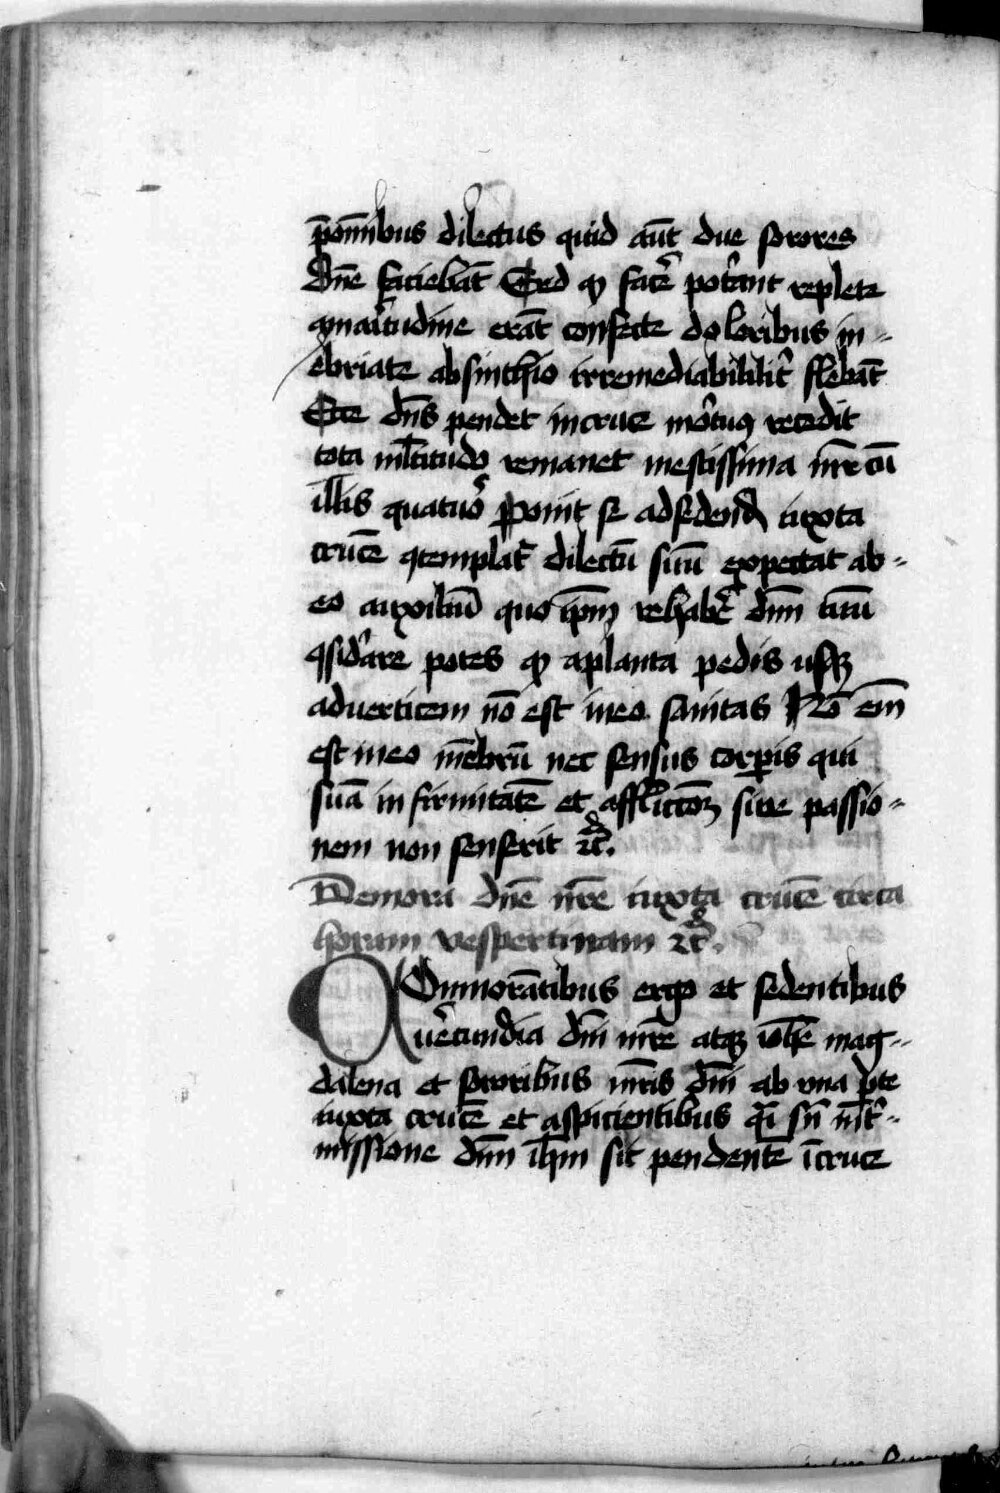 p̄ om̄ibus dilectus quid aūt due sorores
dn̄e faciebāt Sed qͥ facͤe potͤant replete
amaͥtudine erāt confecte doloribus in-
ebriate absinthio irremediabilitͥ flebāt
Ecce dn̄s pendet in cruce moͬtuꝰ recedit
tota ml̄titudo remanet mestissima mr̄e cū
ill̄is quatuoͬ ponit se ad sedend iuxta
crucē ꝯtemplat̄ dilectū suū expectat ab-
eo auxiliū quo ip̄m rehabͤe dn̄m tuū
ꝯsidͤare potes qͥ a planta pedis usqꝫ
ad uerticem nō est in eo sanitas Nō em̄
est in eo mēbrū nec sensus corp̄is qui
suā infirmitatē et afflictōꝫ siue passio-
nem non senserit ⁊c̄.
De mora dn̄e nr̄e iuxta crucē circa
horam vespertinam ⁊c̄.
Commorātibus ergo et sedentibus
uͤecundia dn̄i mr̄e atqꝫ ioh̄e mag-
dalena et sororibus mr̄is dn̄i ab una p̄te
iuxta crucē et aspicientibus qͣi sn̄ int̄-
missione dn̄m ih̄m sic pendentē ī cruce